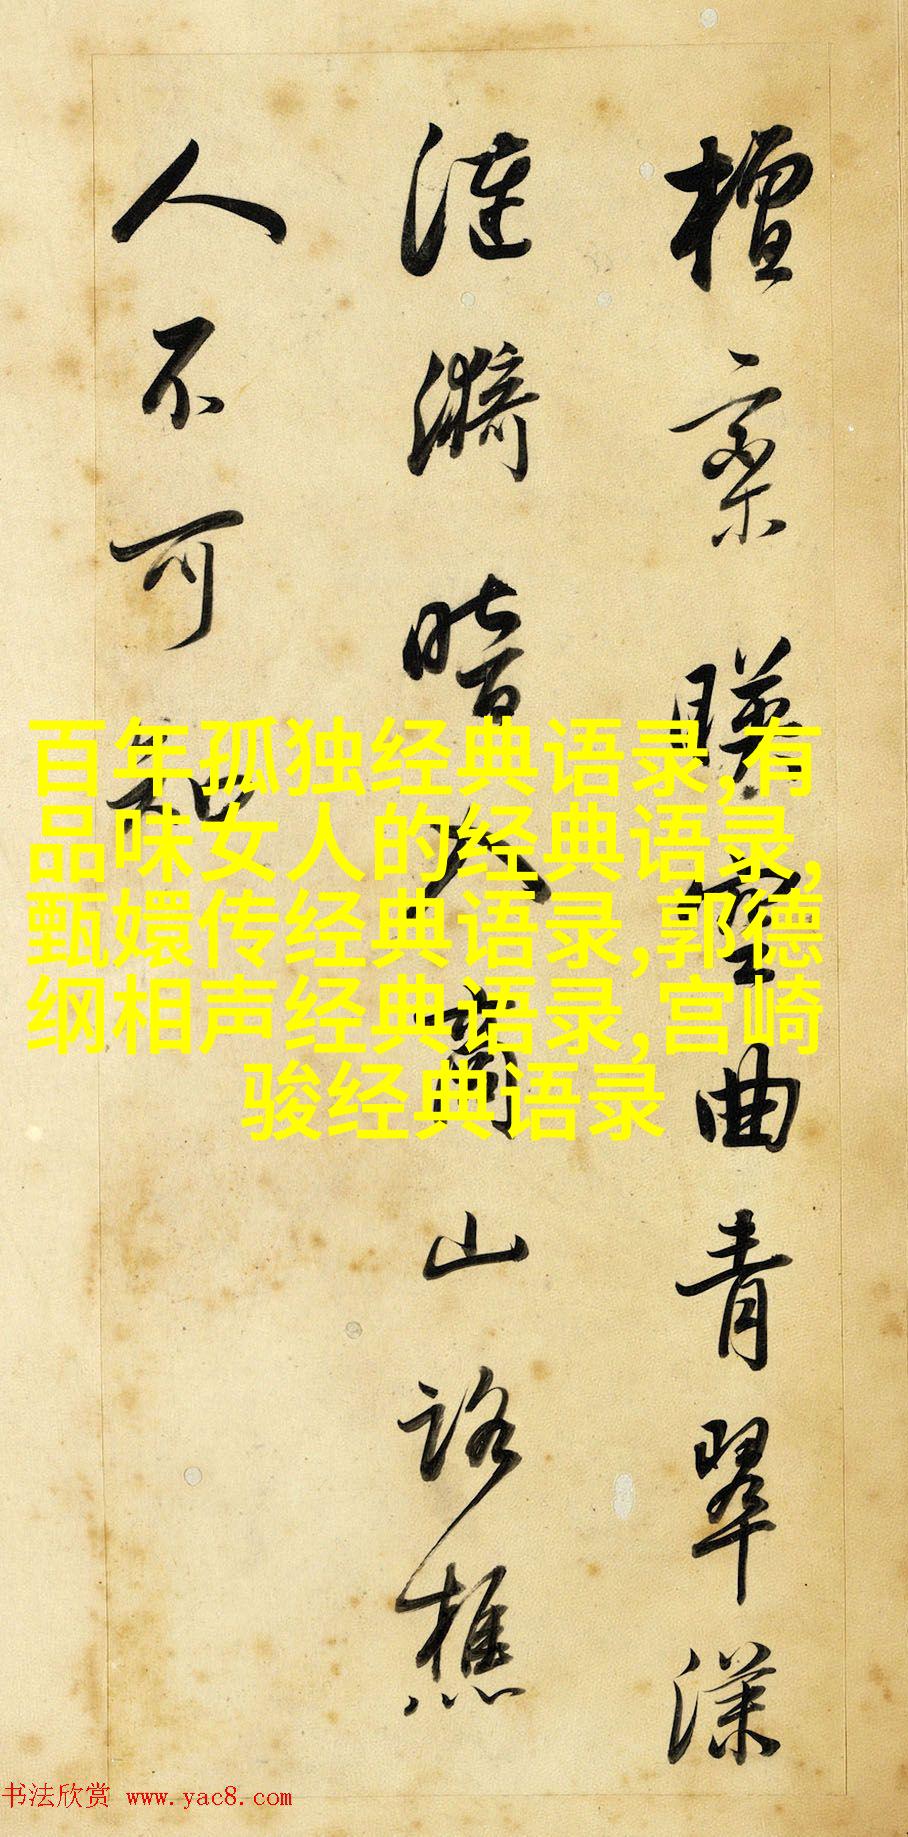 檀欒暎空曲青翠漾
漣漪暗入商山路樵
人不可知
百年孤独经典语录,有
品味女人的经典语录,
甄嬛传经典语录,郭德
纲相声经典语录,宫崎
骏经典语录
书法欣赏 www.yac8.com